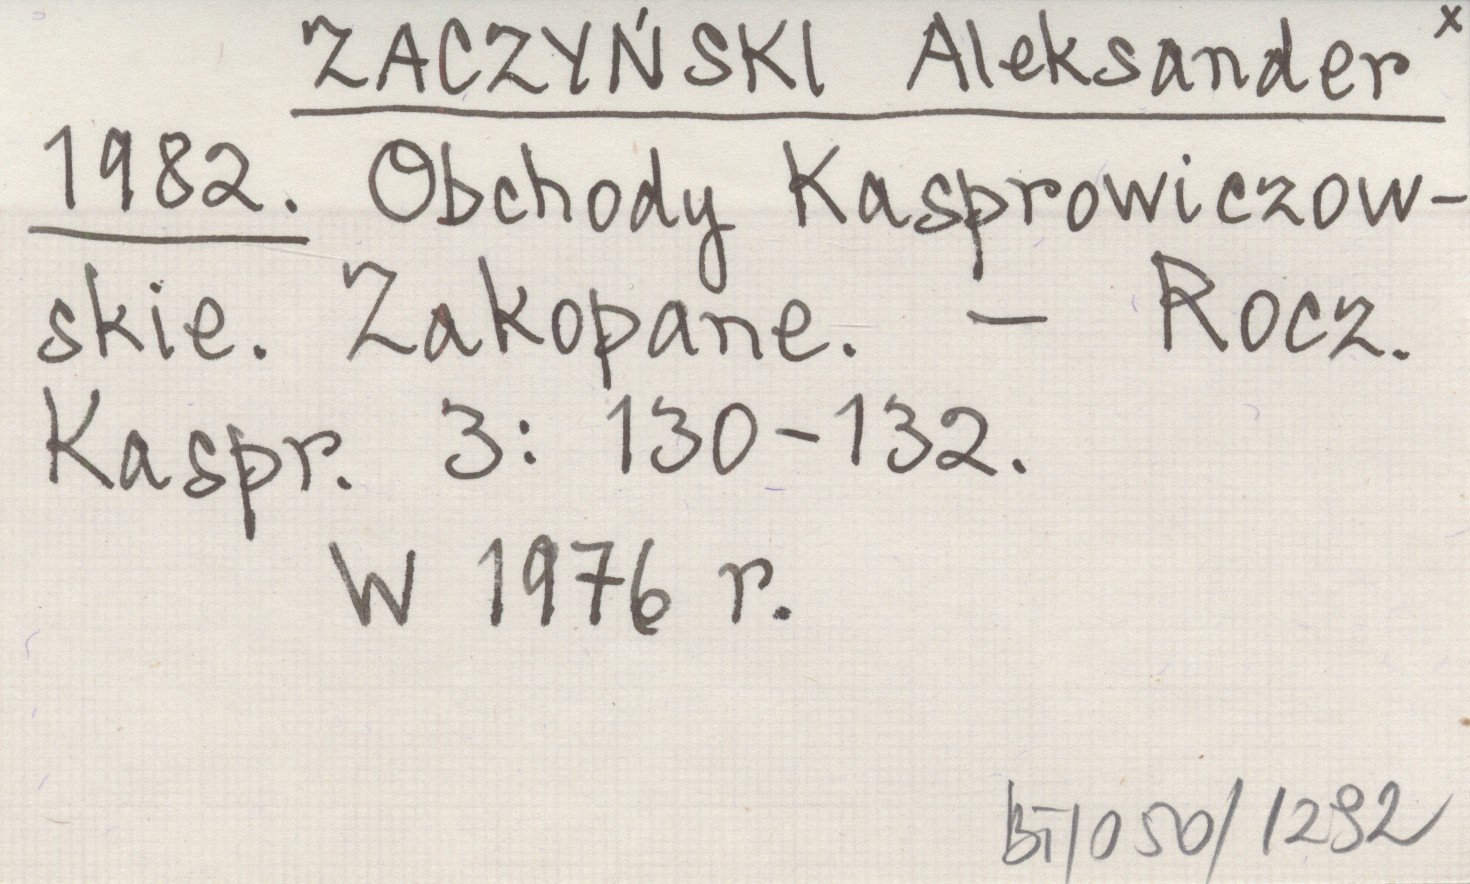 ZACZYŃSKI Aleksander x
1982. Obchody Kasprowiczow-
skie. Zakopane. – Rocz.
Kaspr. 3: 130-132.
W 1976 r.
BT/050/1292